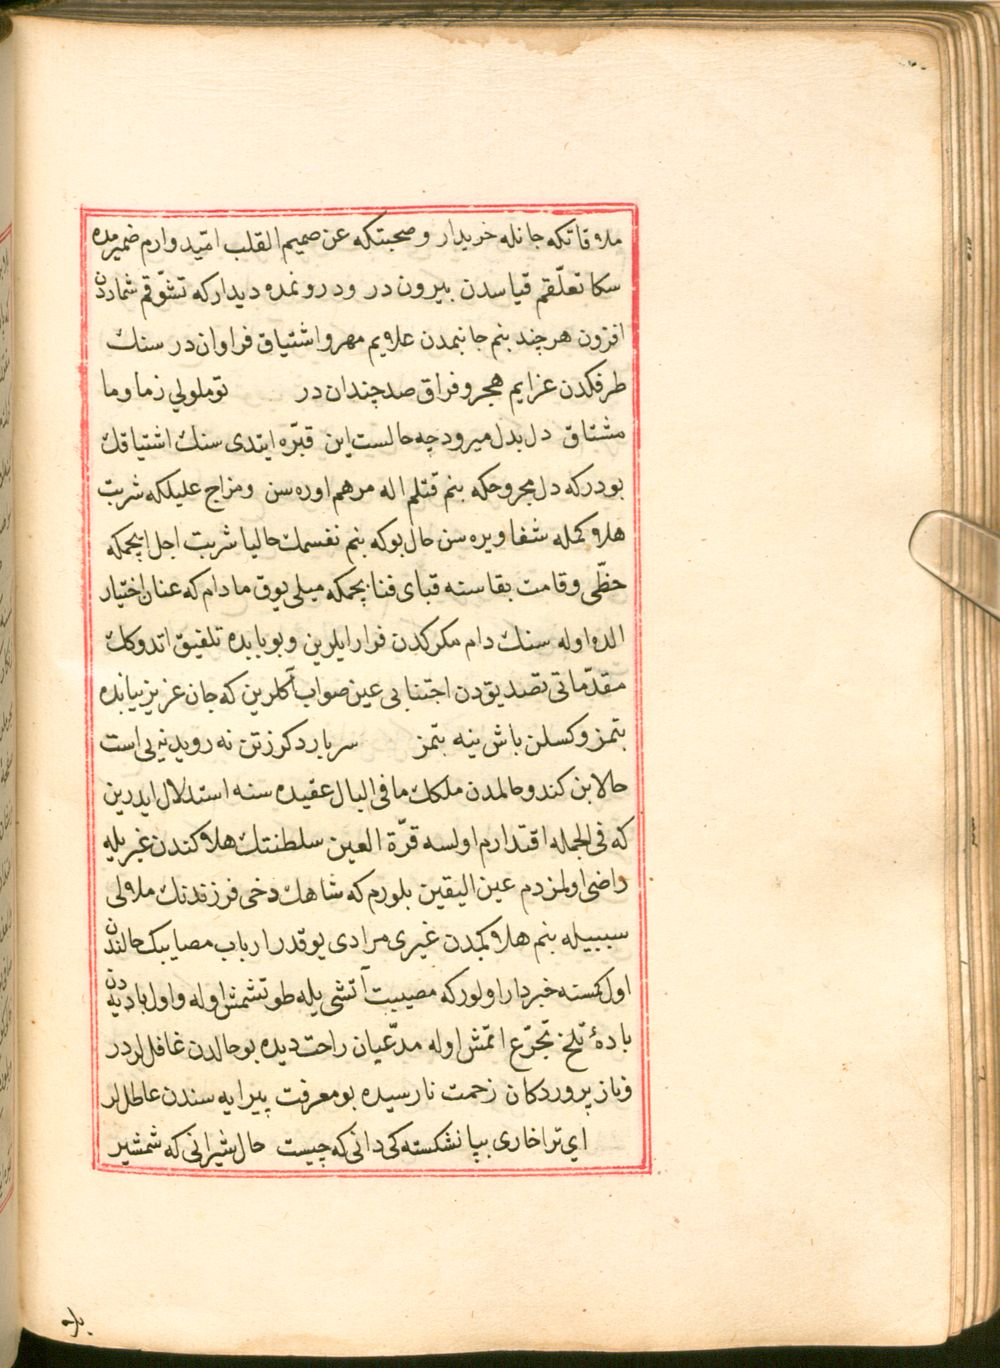 ملاقاتكه جانله خريدار و صحبتكه عن صميم القلب اميدوارم ضميرمده
سكا تعلّقم قياسدن بيرون در و درونمده ديداركه تشوّقم شماردن
افزون هرچند بنم جانبمدن علايم مهر و اشتياق فراوان در سنك
طرفكدن عزايم هجر و فراق صد چندان در تو ملولي ز ما و ما
مشتاق دل بدل ميرود چه حالست اين قبّره ايتدى سنك اشتياقك
بودركه دل مجروحكه بنم قتلم اله مرهم اوره سن و مزاج عليلكه شربت
هلاكمله شفا ويره سن حال بوكه بنم نفسمك حاليا شربت اجل ايچمكه
حظّى و قامت بقاسنه قباى فنا بچمكه ميلى يوق مادام كه عنان اختيار
الده اوله سنك دام مكركدن فرار ايلرين و بو بابده تلفيق اتدوكك
مقدّماتى تصديقدن اجتنابى عين صواب آكلرين كه جان عزيز بيابنده
بتمز و كسلن باش ينه بتمز سر بار دكر ز تن نه رويد نى است
حالا بن كندو حالمدن ملكك ما فى البال عقيده سنه استدلال ايدرين
كه فى الجمله اقتدارم اولسه قرّة العين سلطنتك هلاكندن غيريله
راضى اولمزدم عين اليقين بلورم كه شاهك دخى فرزندنك ملالى
سببيله بنم هلاكمدن غيرى مرادى يوقدر ارباب مصايبك حالندن
اول كسنه خبردار اولوركه مصيبت آتشى يله طوتشمش اوله و اول باديه‌دن
بادهٔ تلخ تجرّع اتمش اوله مدّعيان راحت ديده بو حالدن غافللردر
و ناز پروردكان زحمت نارسيده بو معرفت پيرايه سندن عاطللر
اي ترا خارى بپا نشكسته كى دانى كه چيست حال شيرانى كه شمشير
بلا